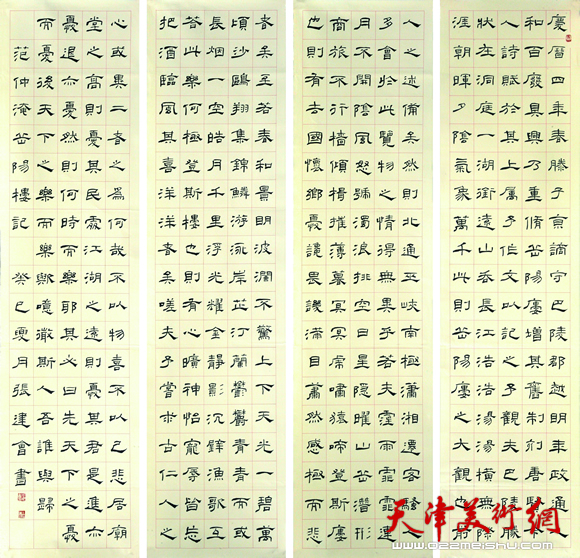 慶曆四年春滕子京謫守巴陵郡越明年政通人
和百廢具興乃重脩岳陽樓增其舊制刻唐賢今
人詩賦於其上屬予作文以記之予觀夫巴陵勝
狀在洞庭一湖銜遠山吞長江浩浩湯湯橫無際
涯朝暉夕陰氣象萬千此則岳陽樓之大觀也前
人之述備矣然則北通巫峽南極瀟湘遷客騷人
多會於此覽物之情得無異乎若夫霪雨霏霏連
月不開陰風怒號濁浪排空日星隱曜山岳潛形
商旅不行檣傾楫摧薄暮冥冥虎嘯猿啼登斯樓
也則有去國懷鄉憂讒畏譏滿目蕭然感極而悲
者矣至若春和景明波瀾不驚上下天光一碧萬
頃沙鷗翔集錦鱗游泳岸芷汀蘭鬱鬱青青而或
長煙一空皓月千里浮光耀金靜影沉璧漁歌互
答此樂何極登斯樓也則有心曠神怡寵辱皆忘
把酒臨風其喜洋洋者矣嗟夫予嘗求古仁人之
心或異二者之爲何哉不以物喜不以己悲居廟
堂之高則憂其民處江湖之遠則憂其君是進亦
憂退亦憂然則何時而樂耶其必曰先天下之憂
而憂後天下之樂而樂歟噫微斯人吾誰與歸
范仲淹岳陽樓記 癸巳夏月張建會書
天津美術網
www.022meishu.com